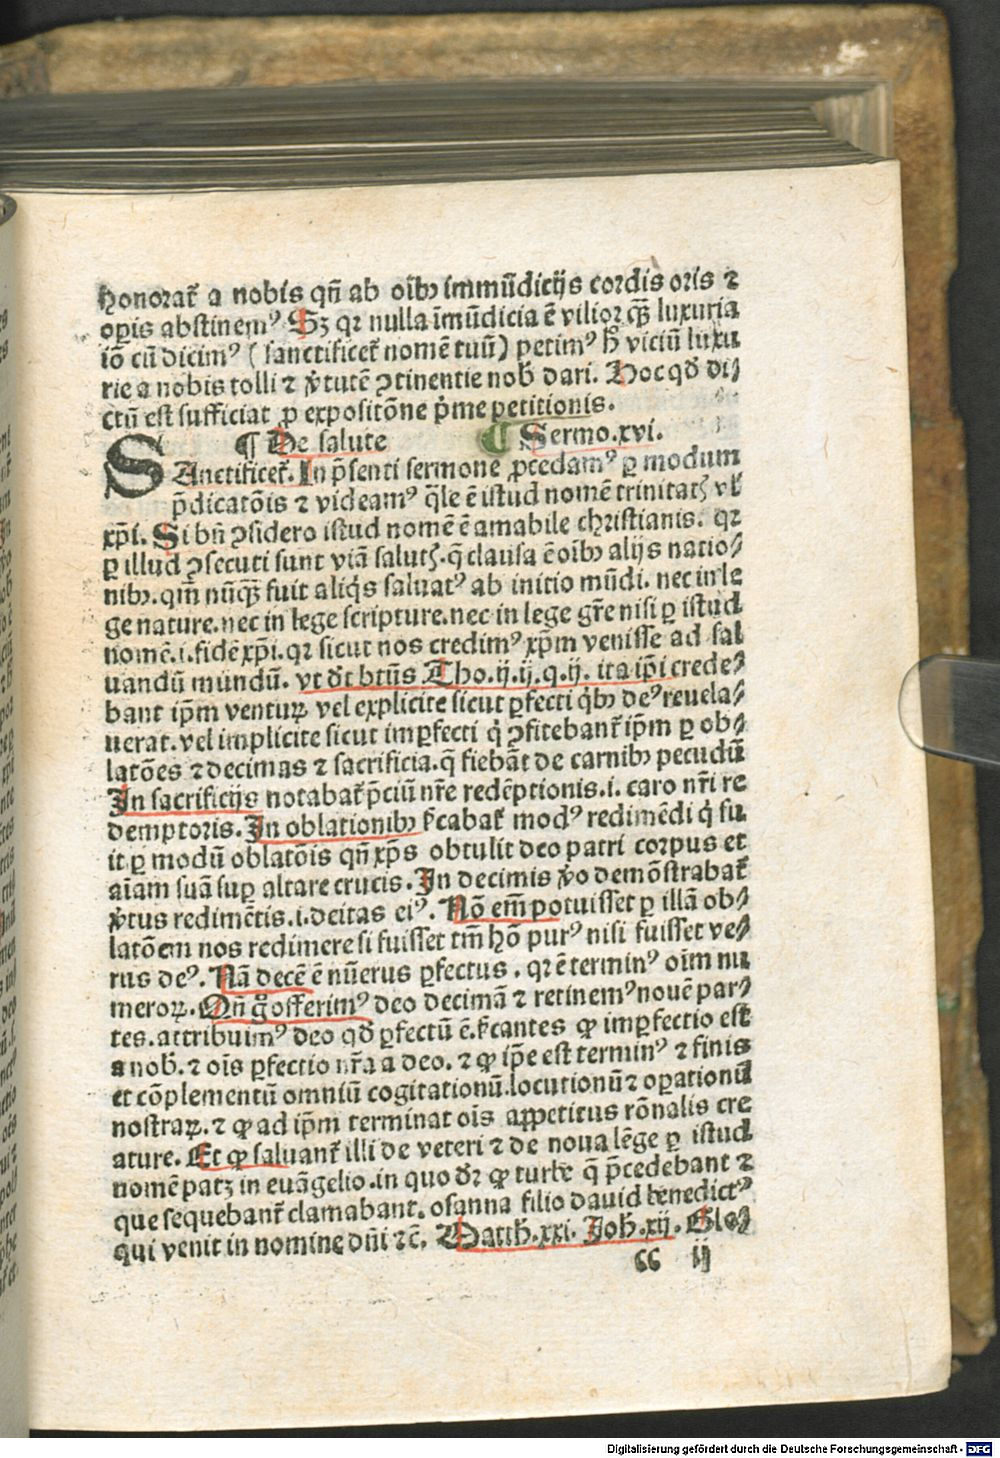 honorat᷑ a nobis qñ ab oĩbꝫ immũdicijs cordis oris ⁊
oꝑis abstinemꝰ Sꝫ qꝛ nulla ĩmũdicia ẽ viliorqꝫ̃ luxuria
iõ cũ dicimꝰ (sanctificet᷑ nomẽ tuũ) petimꝰ h̃ viciũ luxu
rie a nobis tolli ⁊ v̾tutẽ ꝯtinentie nob̃ dari. Hoc qđ di⸗
ctũ est sufficiat ꝓ expositõne p̾me petitionis.
¶ De salute ¶ Sermo.xvi.
SAnctificet᷑. In p̃senti sermone ꝓcedamꝰ ꝑ modum
p̃dicatõis ⁊ videamꝰ q̃le ẽ istud nomẽ trinitatꝭ vl᷑
xp̃i. Si bñ ꝯsidero istud nomẽ ẽ amabile christianis. qꝛ
ꝑ illud ꝯsecuti sunt viã salutꝭ. q̃ clausa ẽ oĩbꝫ alijs natio⸗
nibꝫ. qm̃ nũqꝫ̃ fuit aliq̾s saluatꝰ ab initio mũdi. nec in le
ge nature. nec in lege scripture. nec in lege gr̃e nisi ꝑ istud
nomẽ .i. fidẽ xp̃i. qꝛ sicut nos credimꝰ xp̃m venisse ad sal
uandũ mundũ. vt dt̾ btũs Tho.ij.ij.q.ij. ita ip̃i crede⸗
bant ip̃m venturꝝ vel explicite sicut ꝑfecti q̾bꝫ deꝰ reuela⸗
uerat. vel implicite sicut imꝑfecti q̾ ꝯfitebant᷑ ip̃m ꝑ ob⸗
latões ⁊ decimas ⁊ sacrificia. q̃ fiebãt de carnibꝫ pecudũ
In sacrificijs notabat᷑ p̃ciũ nr̃e redẽptionis .i. caro nr̃i re
demptoris. In oblationibꝫ fi̾cabat᷑ modꝰ redimẽdi q̾ fu
it ꝑ modũ oblatõis qñ xp̃s obtulit deo patri corpus et
aĩam suã suꝑ altare crucis. In decimis v̾o demõstrabat᷑
v̾tus redimẽtis .i. deitas eiꝰ. Nõ em̃ potuisset ꝑ illã ob⸗
latõem nos redimere si fuisset tm̃ hõ purꝰ nisi fuisset ve⸗
rus deꝰ. Nã decẽ ẽ nũerus ꝑfectus. qꝛ ẽ terminꝰ oĩm nu
merorꝝ. Qñ g̊ offerimꝰ deo decimã ⁊ retinemꝰ nouẽ par⸗
tes. attribuimꝰ deo qđ ꝑfectũ ẽ. fi̾cantes ꝙ imꝑfectio est
a nob̃. ⁊ oĩs ꝑfectio nr̃a a deo. ⁊ ꝙ ip̃e est terminꝰ ⁊ finis
et cõplementũ omniũ cogitationũ. locutionũ ⁊ oꝑationũ
nostrarꝝ. ⁊ ꝙ ad ip̃m terminat oĩs appetitus rõnalis cre
ature. Et ꝙ saluant᷑ illi de veteri ⁊ de noua lẽge ꝑ istud
nomẽ patꝫ in euãgelio. in quo dr̃ ꝙ turbe q̃ p̃cedebant ⁊
que sequebant᷑ clamabant. osanna filio dauid benedictꝰ
qui venit in nomine dñi ⁊c̃. Matth̃.xxi. Joh̃.xij. Glo⸗
cc ij
Digitalisierung gefördert durch die Deutsche Forschungsgemeinschaft - DFG